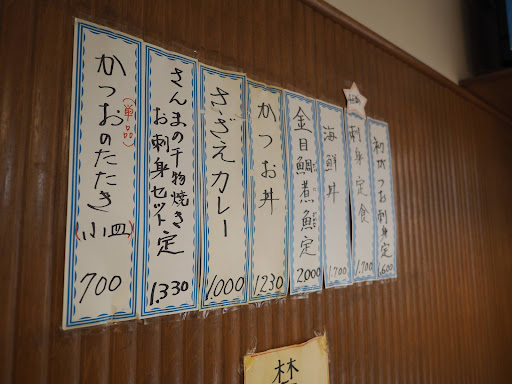 初がつお刺身定
1,600
刺身定食
1,700
海鮮丼
1,700
金目鯛煮魚定
2000
かつお丼
1230
さざえカレー
1.000
さんまの干物焼き
お刺身セット定
1.330
(単品)
かつおのたたき(小皿)
700